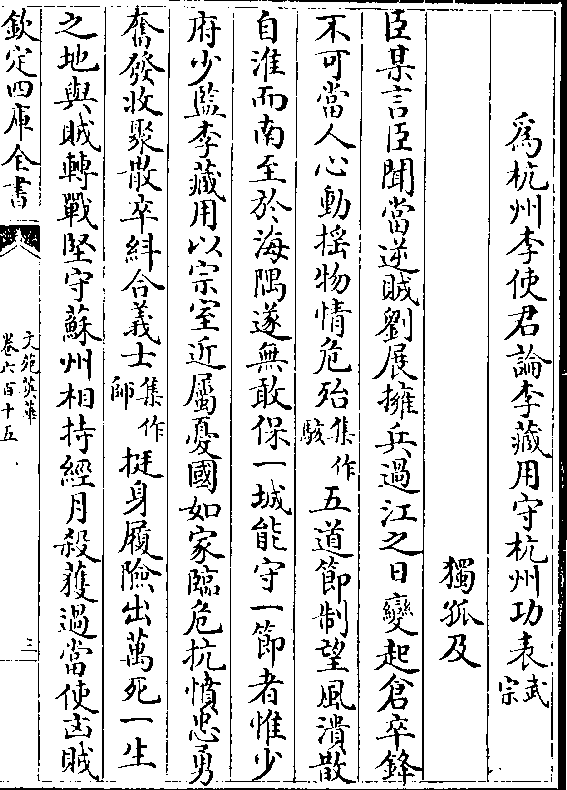 為杭州李使君論李藏用守杭州功表武宗
獨孤及
臣某言臣聞當逆賊劉展擁兵過江之日變起倉卒鋒
不可當人心動揺物情危殆集作駭五道節制望風潰散
自淮而南至於海隅遂無敢保一城能守一節者惟少
府少監李藏用以宗室近屬憂國如家臨危抗憤忠勇
奮發收聚散卒糾合義士集作師挺身履險出萬死一生
之地與賊轉戰堅守蘇州相持經月殺獲過當使凶賊
欽定四庫全書
文苑英華
卷六百十五
三